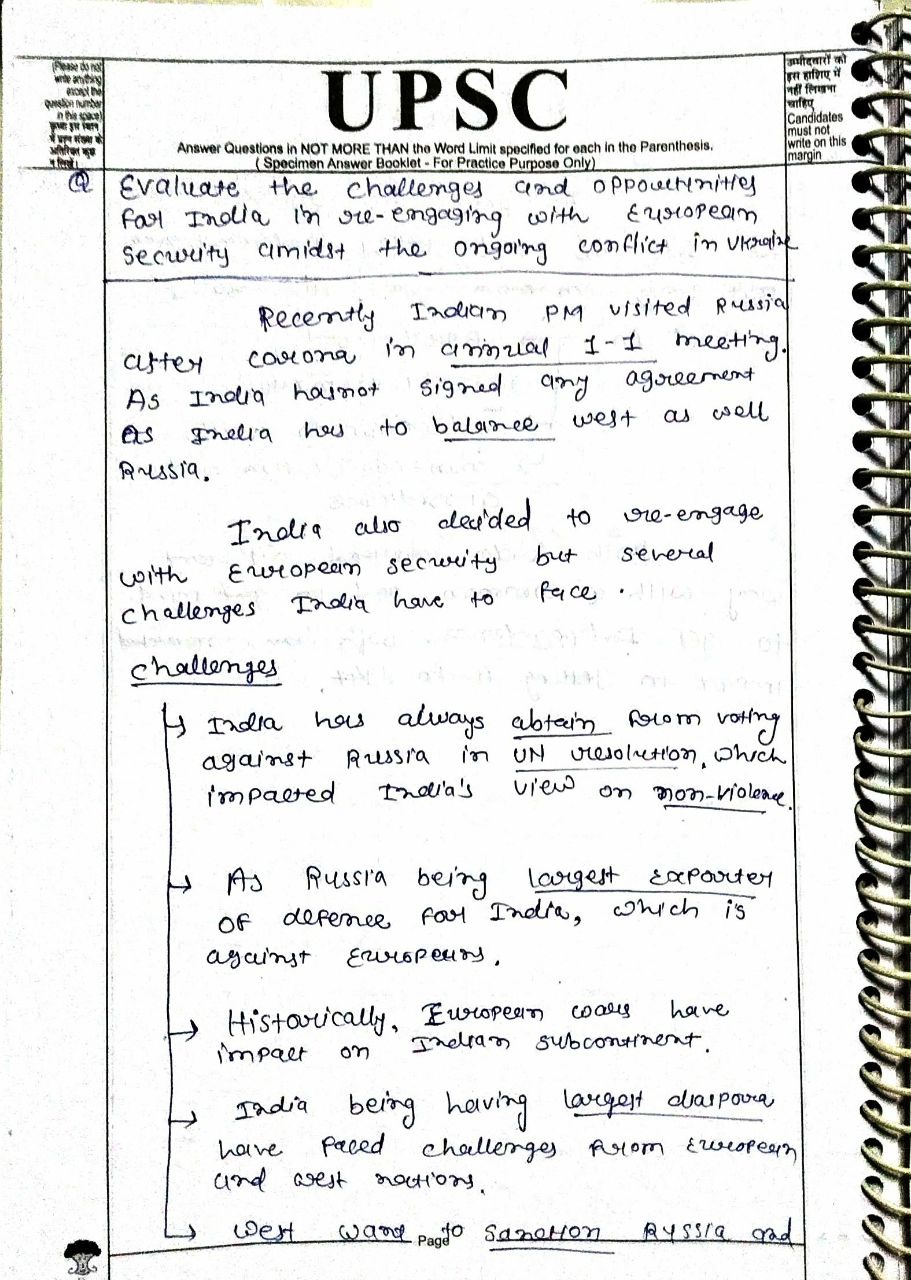 (Please do not
write anything
except the
question number
in this space)
कृपया इस स्थान
में प्रश्न संख्या के
अतिरिक्त कुछ
न लिखें।
UPSC
Answer Questions in NOT MORE THAN the Word Limit specified for each in the Parenthesis.
( Specimen Answer Booklet - For Practice Purpose Only)
उम्मीदवारों को
इस हाशिए में
नहीं लिखना
चाहिए
Candidates
must not
write on this
margin
Q Evaluate the challenges and oppourtunities
for India in re-engaging with European
security amidst the ongoing conflict in Ukraine
Recently Indian PM visited Russia
after corona in annual 1-1 meeting.
As India hasnot signed any agreement
as India has to balance west as well
Russia.
India also decided to re-engage
with European security but several
challenges India have to face.
challenges
India has always abtain from voting
against Russia in UN resolution, which
impacted India's view on non-violence.
As Russia being largest exporter
of defence for India, which is
against Europeans.
Historically, European wars have
impact on Indian subcontinent.
India being having largest diaspora
have faced challenges from European
and west nations.
West want to sanction Russia and
Page